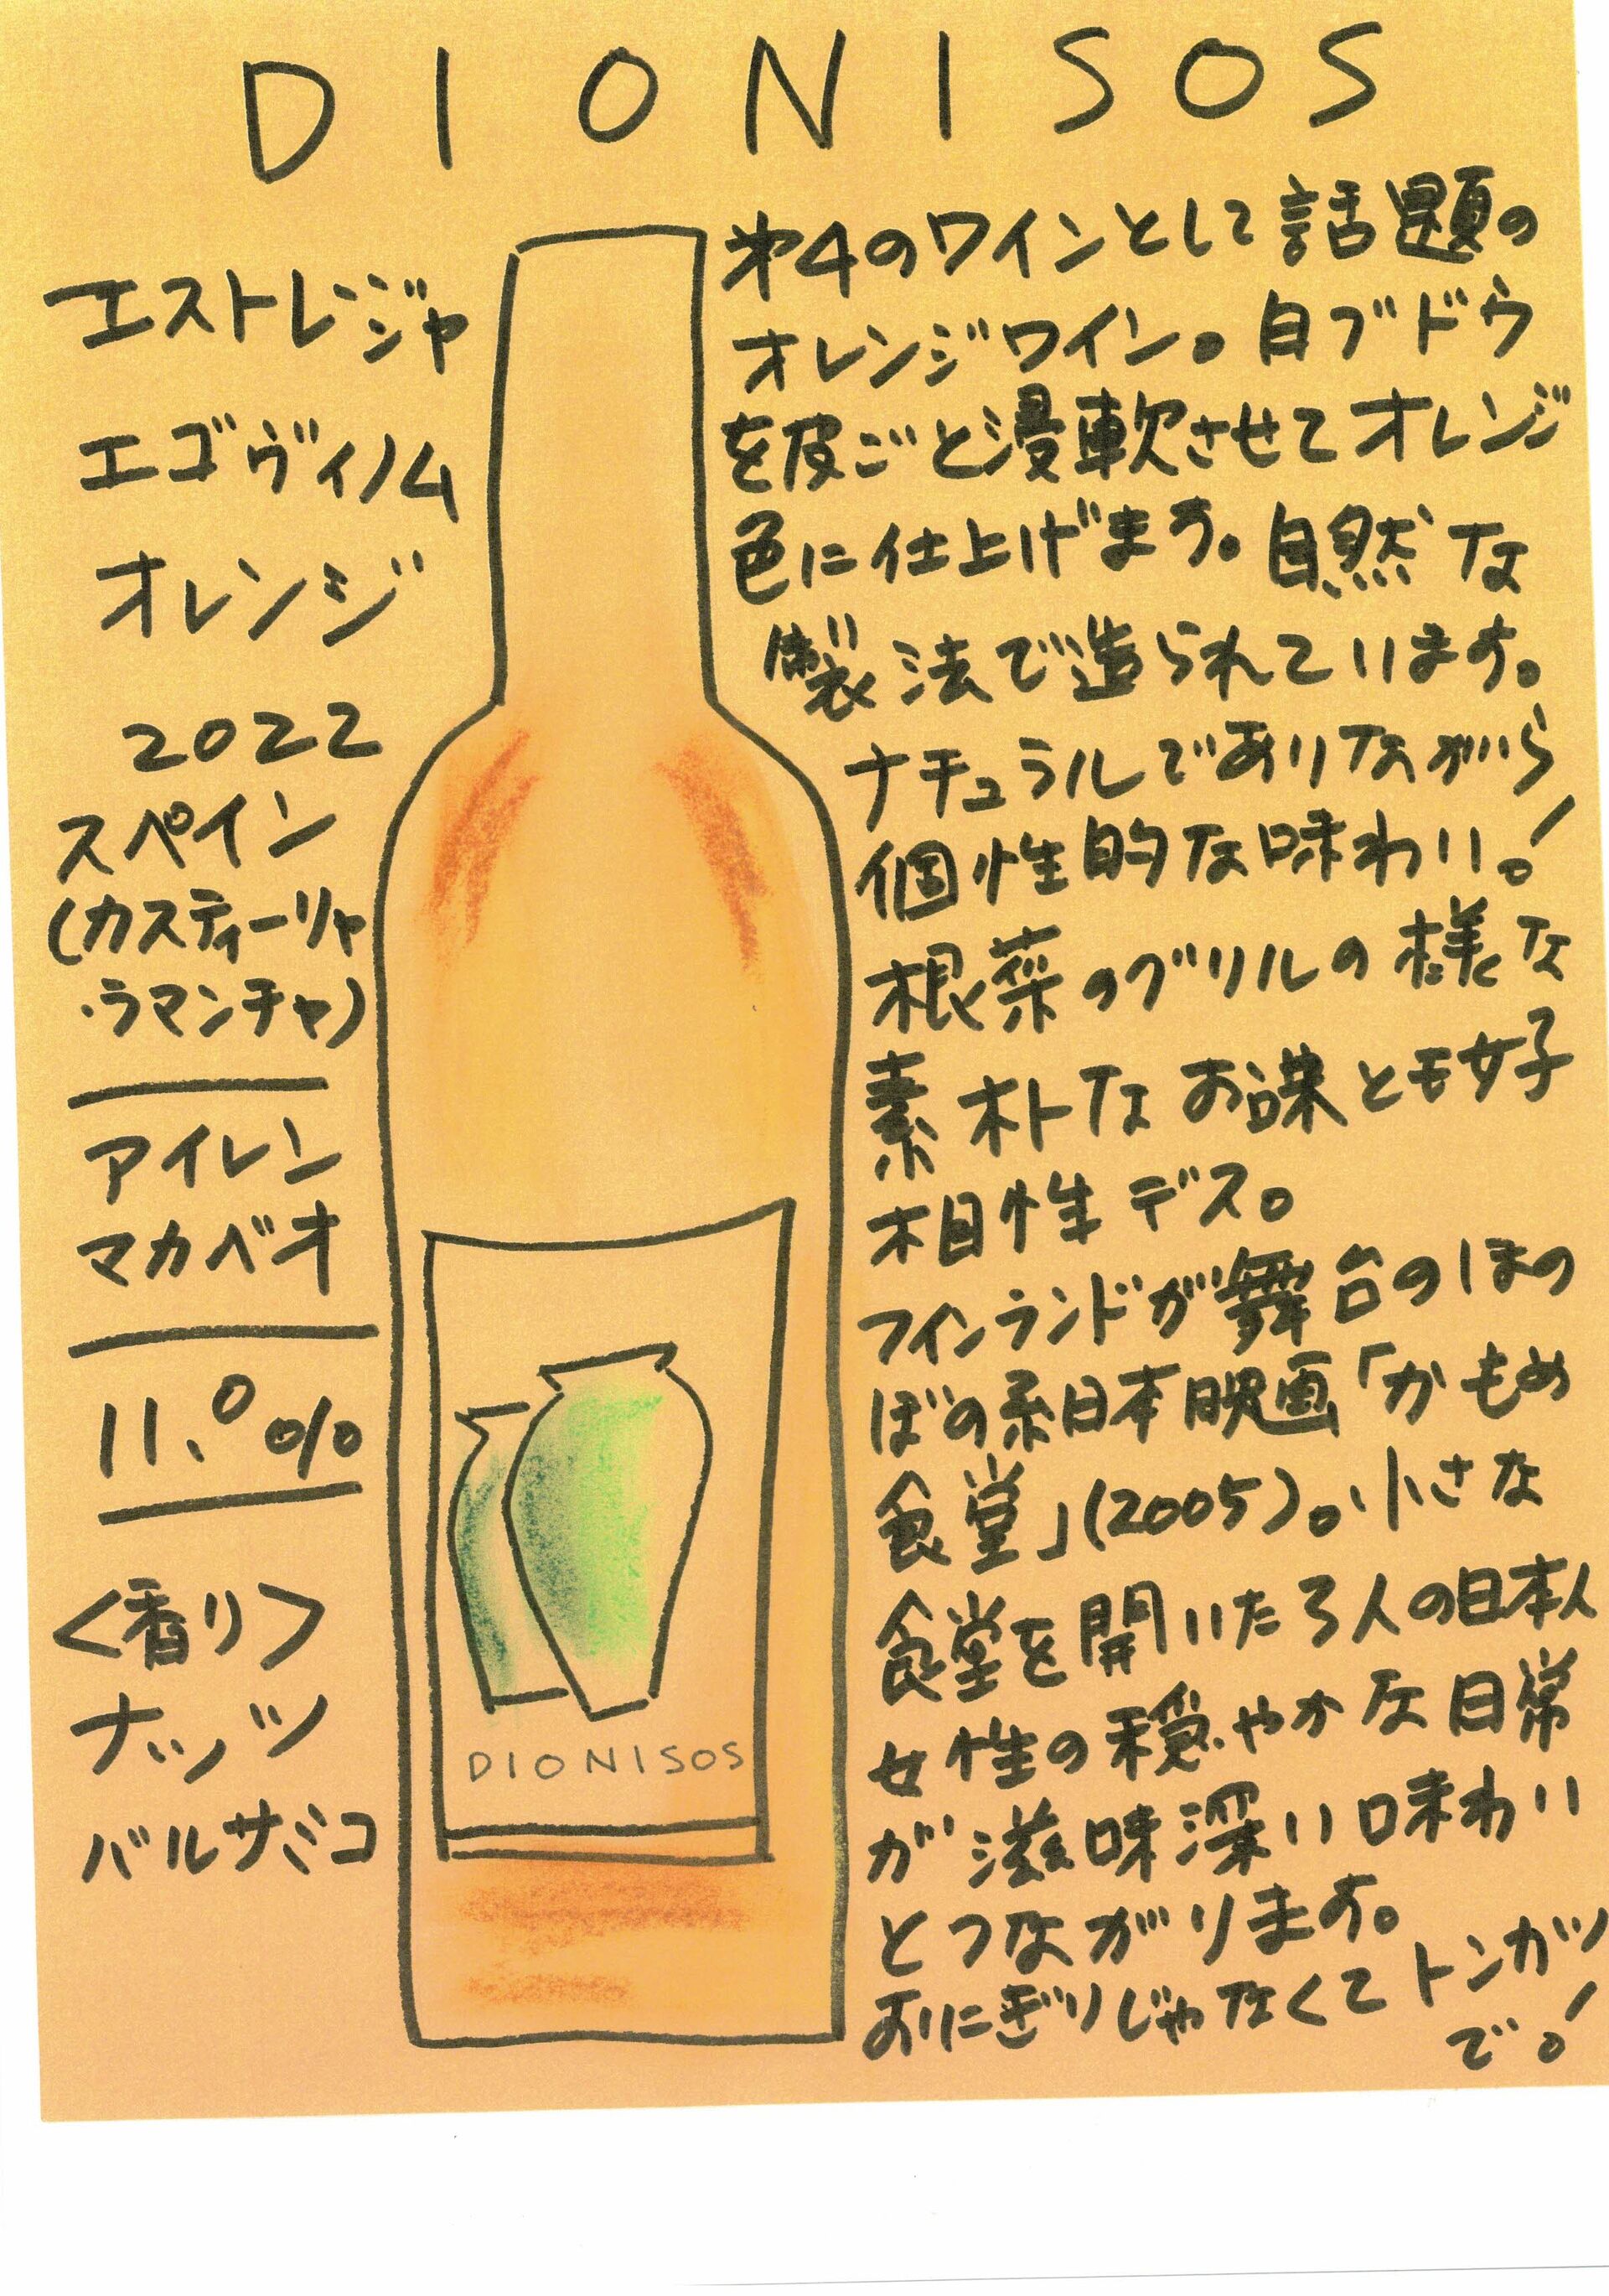 DIONISOS
エストレジャ
エゴヴィノム
オレンジ
2022
スペイン
(カスティーリャ
・ラマンチャ)
アイレン
マカベオ
11.0%
<香り>
ナッツ
バルサミコ
DIONISOS
第4のワインとして話題の
オレンジワイン。白ブドウ
を皮ごと浸軟させてオレンジ
色に仕上げます。自然な
製法で造られています。
ナチュラルでありながら
個性的な味わい!
根菜のグリルの様な
素朴なお味とも好
相性デス。
フィンランドが舞台のほの
ぼの系日本映画「かもめ
食堂」(2005)。小さな
食堂を開いた3人の日本人
女性の穏やかな日常
が滋味深い味わい
とつながります。
おにぎりじゃなくてトンカツ
で!